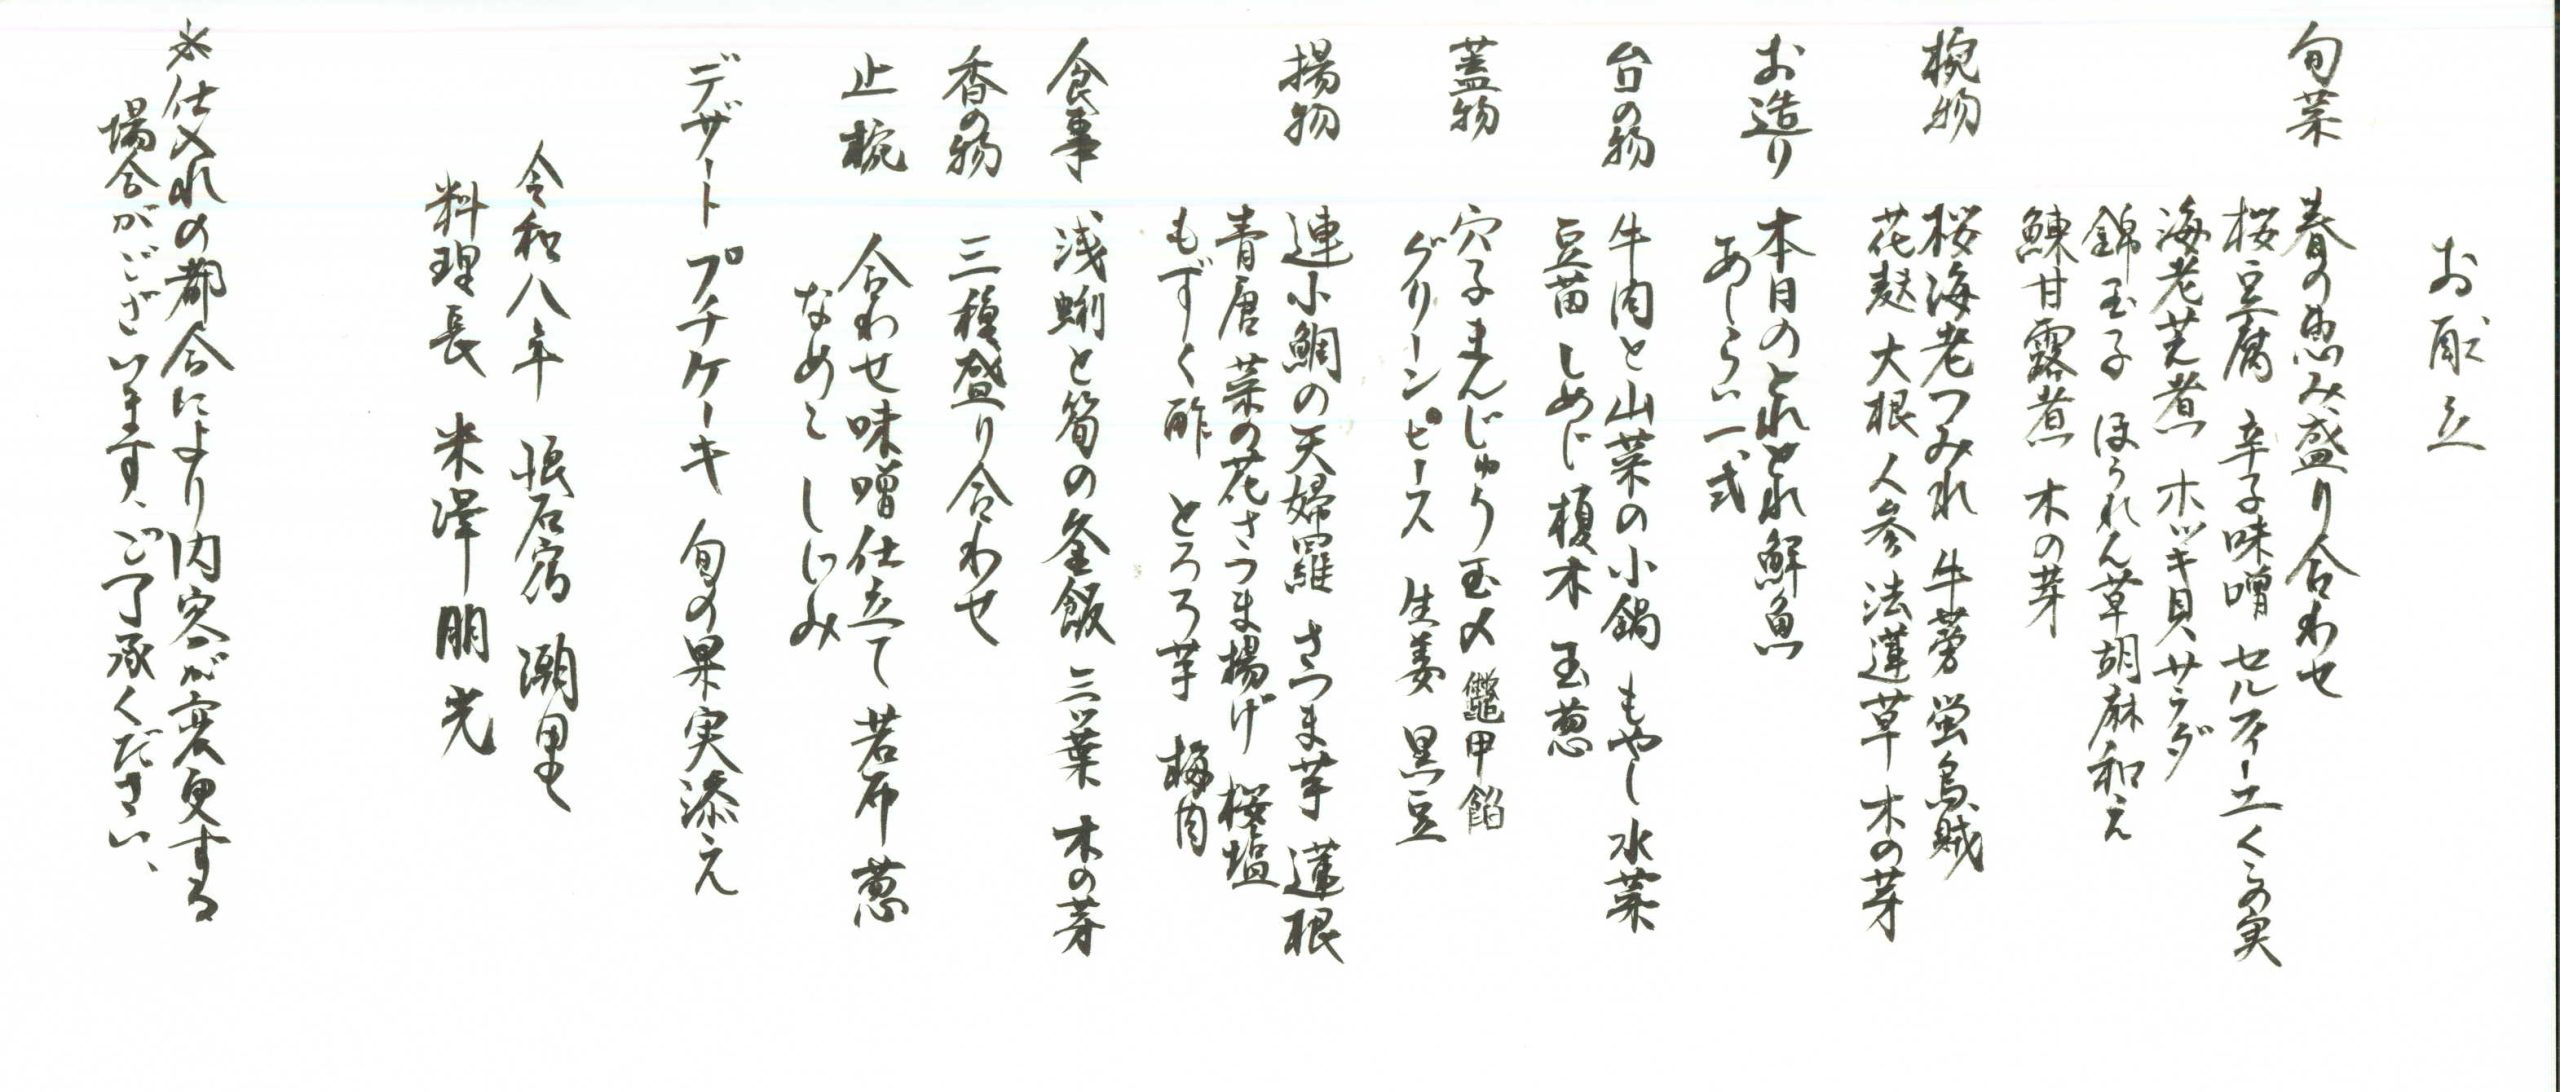 お献立
旬菜 春の恵み盛り合わせ
桜豆腐 辛子味噌 セルフィーユ くこの実
海老芝煮 ホッキ貝サラダ
錦玉子 ほうれん草胡麻和え
鰊甘露煮 木の芽
椀物 桜海老つみれ 牛蒡 蛍烏賊
花麩 大根 人参 法蓮草 木の芽
お造り 本日のとれとれ鮮魚
あしらい一式
台の物 牛肉と山菜の小鍋 もやし 水菜
豆苗 しめじ 榎木 玉葱
蓋物 穴子まんじゅう 玉〆 鼈甲餡
グリーンピース 生姜 黒豆
揚物 連小鯛の天婦羅 さつま芋 蓮根
青唐 菜の花さつま揚げ 桜塩
もずく酢 とろろ芋 梅肉
食事 浅蜊と筍の釜飯 三ッ葉 木の芽
香の物 三種盛り合わせ
止椀 合わせ味噌仕立て 若布 葱
なめこ しじみ
デザート プチケーキ 旬の果実添え
令和八年 根石宿 潮里
料理長 米澤朋光
※仕入れの都合により内容が変更する
場合がございます、ご了承ください、